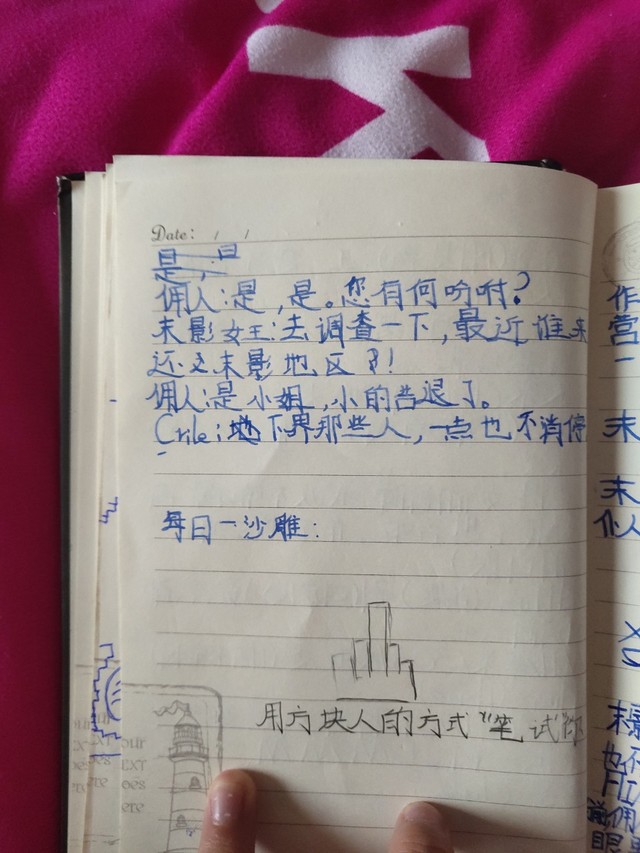 Date: / /
佣人:是,是。您有何吩咐?
末影女王:去调查一下,最近谁来
还文末影地区?!
佣人:是小姐,小的告退了。
Crile:地下界那些人,一点也不消停
每日一沙雕:
用方块人的方式“笔试”你
作
营
一
末
末
仆人
末影
也不
佣
眼